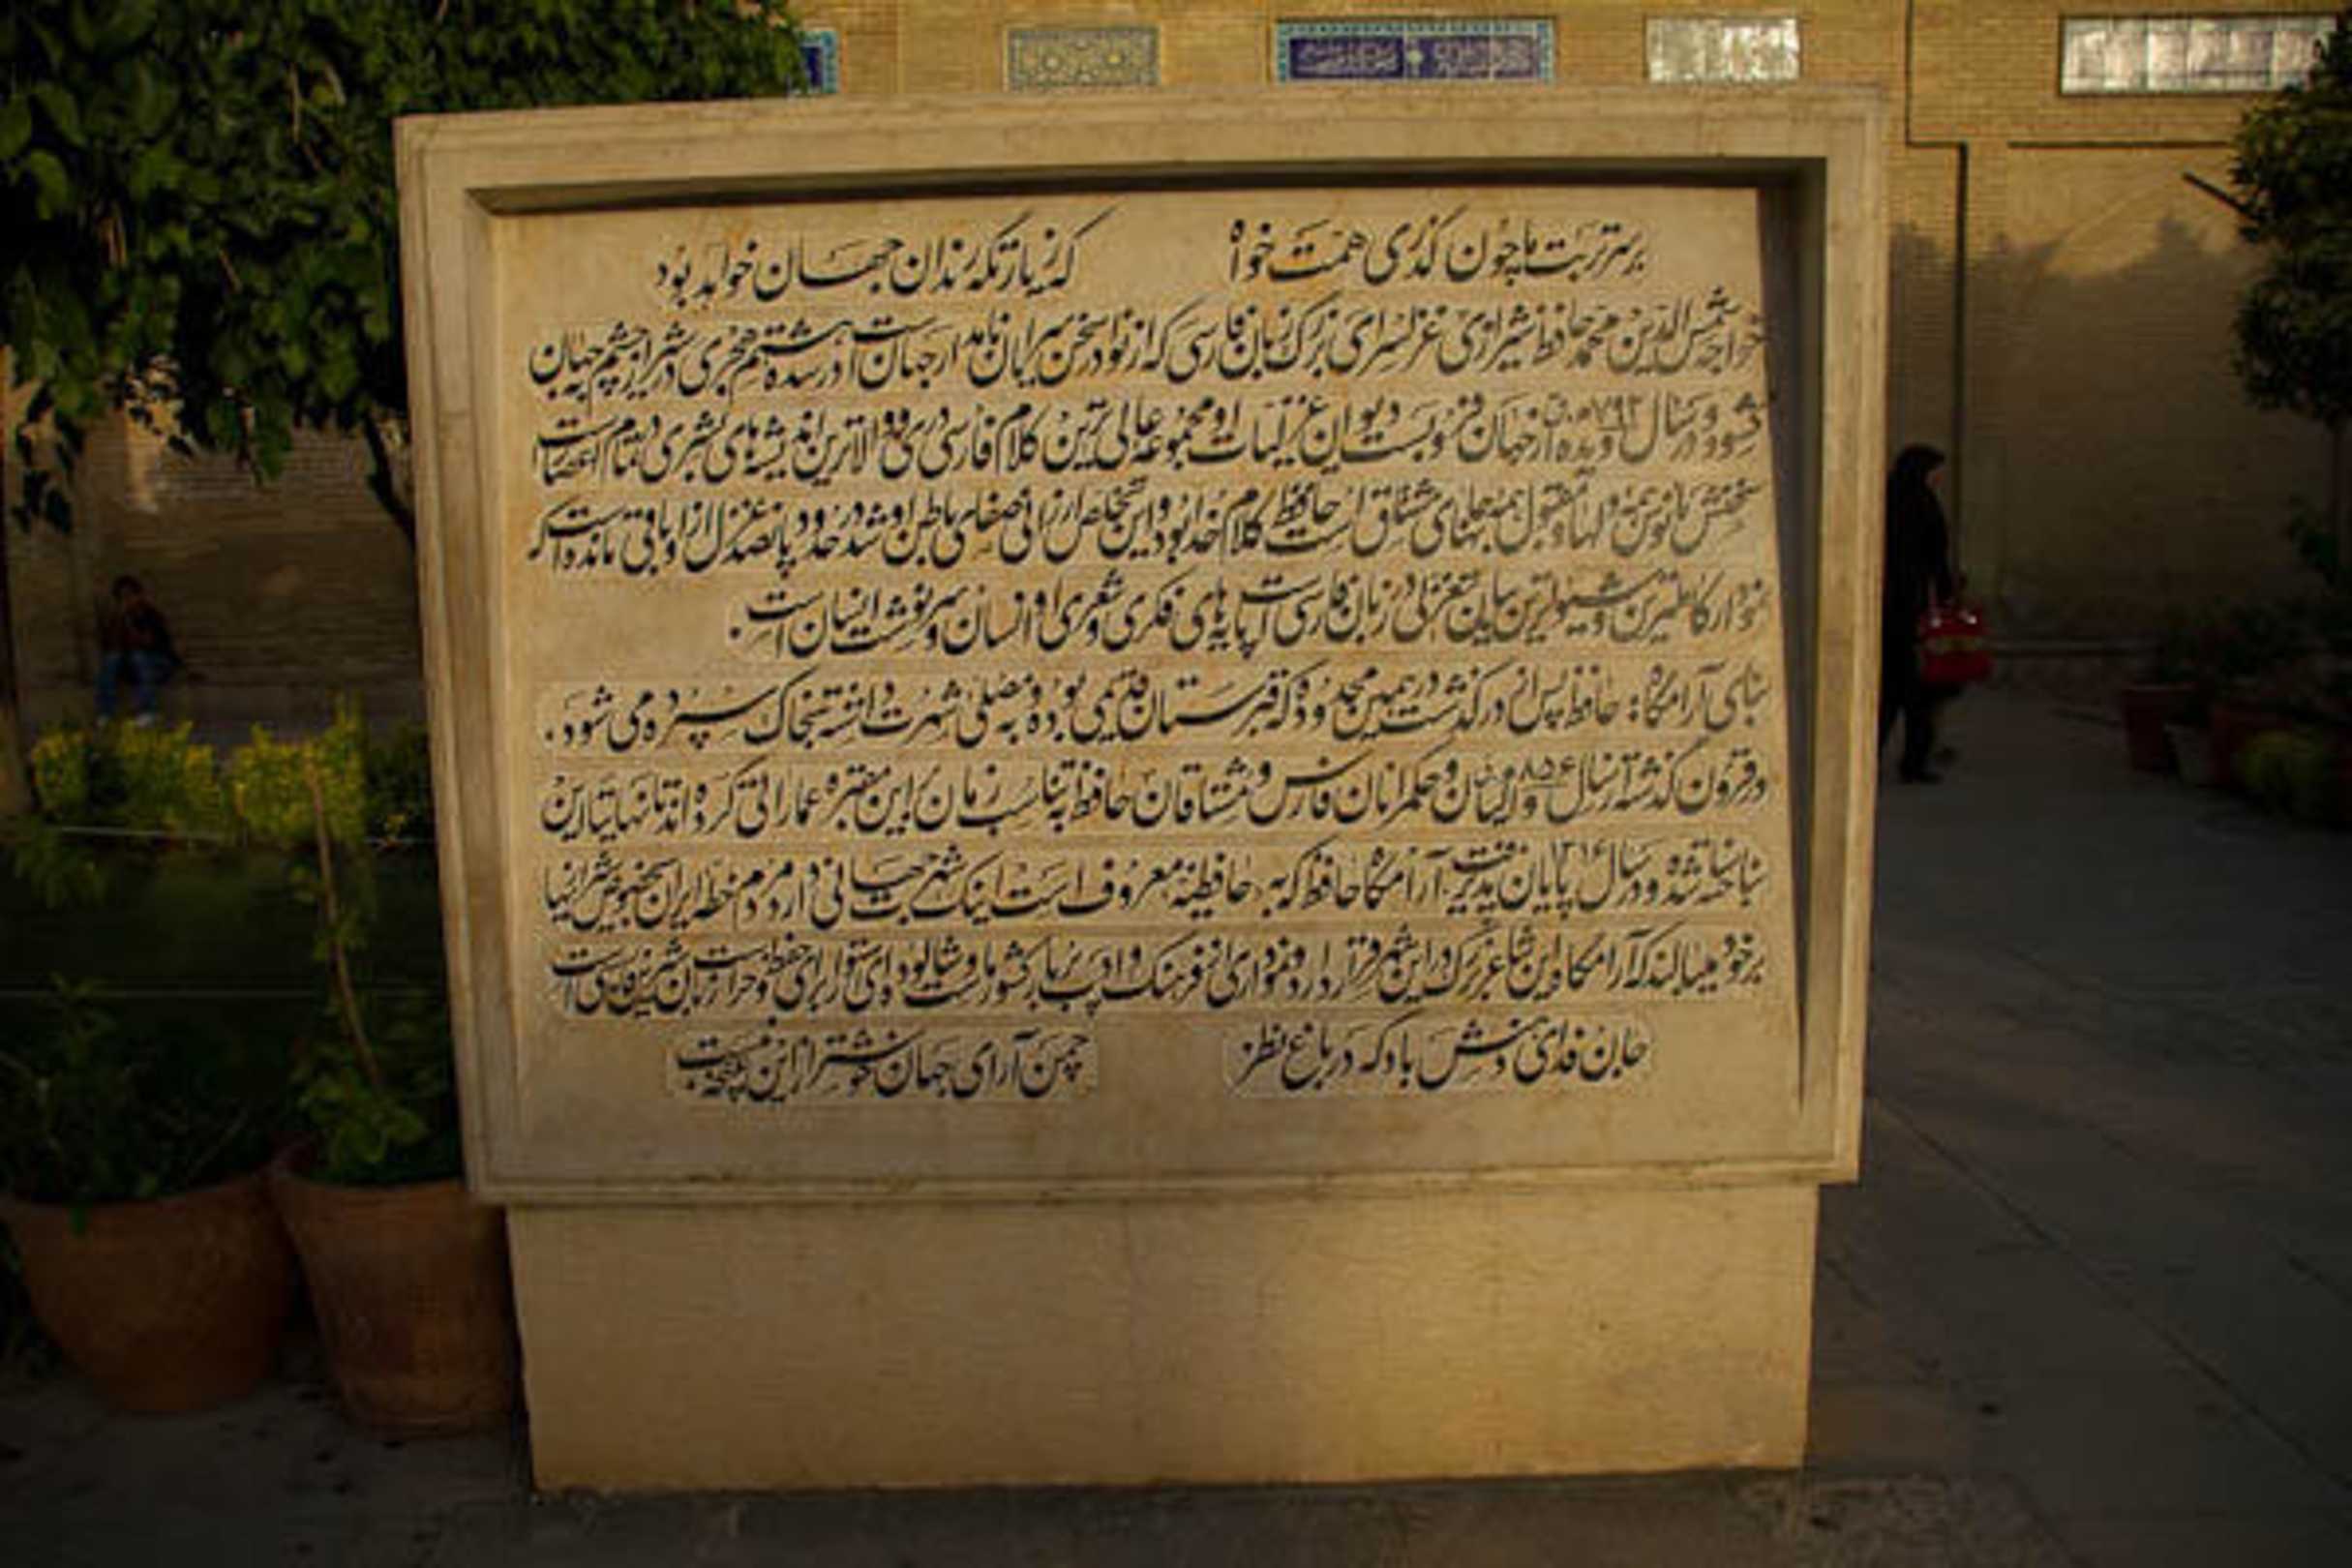 بر سر تربت ما چون گذری همت خواه که زیارتگه رندان جهان خواهد بود
خواجه شمس الدین محمد حافظ شیرازی غزلسرای بزرگ زبان فارسی که از نوادر سخن سرایان نامدار جهان است در سده هشتم هجری در شیراز چشم به جهان
گشود و در سال ۷۹۲ ه.ق دیده از جهان فرو بست دیوان غزلیات او مجموعه عالی ترین کلام فارسی دری و والاترین اندیشه های بشری در تمام اعصار است
سخنش مانوس همه دلها و مقبول همه جانهای مشتاق است حافظ کلام خدا بود و این تخلص ارزانی صفای باطن او شد در حدود پانصد غزل از او باقی مانده است که
نمودار کاملترین و شیواترین بیان تغزلی در زبان فارسی است پایه های فکری و شعری او انسان و سرنوشت انسان است.
بنای آرامگاه: حافظ پس از درگذشت در همین محدوده که قبرستان قدیمی بوده و به مصلی شهرت داشته بخاک سپرده می شود.
در قرون گذشته از سال ۸۵۶ والیان و حکمرانان فارس و مشتاقان حافظ به تناسب زمان بر این مقبره عماراتی کرده اند تا نهایتا این
بنا ساخته شده و در سال ۱۳۱۶ پایان پذیرفت. آرامگاه حافظ که به حافظیه معروف است اینک شهرت جهانی دارد مردم خطه ایران بخصوص شیرازیها
بر خود میبالند که آرامگاه این شاعر بزرگ در این شهر قرار دارد و نموداری از فرهنگ و ادب پربار کشور ماست و شالوده ای استوار برای حفظ و حراست زبان شیرین فارسی است
جان فدای دهنش باد که در باغ نظر چمن آرای جهان خوشتر از این غنچه نبست